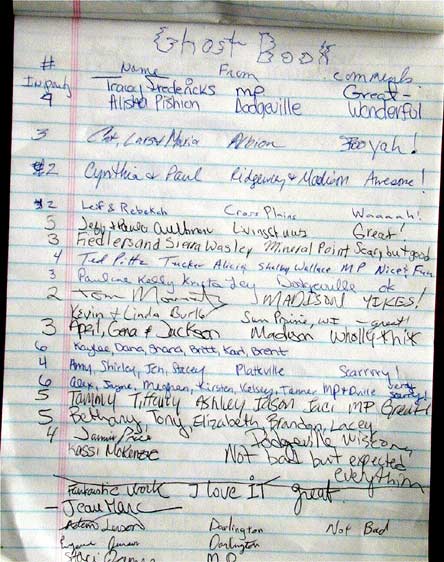 Ghost Book
# Name From comments
In party
4 Traci Fredericks MP Great -
Alisha Pishion Dodgeville Wonderful
3 Lars & Maria Albion yah!
#2 Cynthia & Paul Ridgeway & Madison Awesome!
#2 Leif & Rebekah Cross Plains Waaaah!
5 Jeff & Great!
3 Fiedlers and Sierra Wasley Mineral Point Scary but good
4 Ted Pittz Tucker Alicia Shelby Wallace MP Nice & Fun
3 Pauline Kelly Dodgeville ok
2 Tom MADISON YIKES!
Kevin & Linda Burke Sun Prairie, WI - great!
3 April, Gena & Jackson Madison Wholly
6 Kaylee, Dana, Shana, Britt, Kari, Brent
4 Amy, Shirley, Jen, Stacey Platteville Scarrrry!
6 Alex, Jayne, Meghan, Kirsten, Kelsey, Tanner MP & Dville very scarry!
5 Tammy Tiffany Ashley Jason Jaci MP Great!
5 Bethany, Tony, Elizabeth, Brandon, Lacey
4 Dodgeville Wisconsin
Kassi McKenzie Not bad but expected
everything
Fantastic Work I love iT great
Jean Marc
Adam Darlington Not Bad
Darlington
M.P.